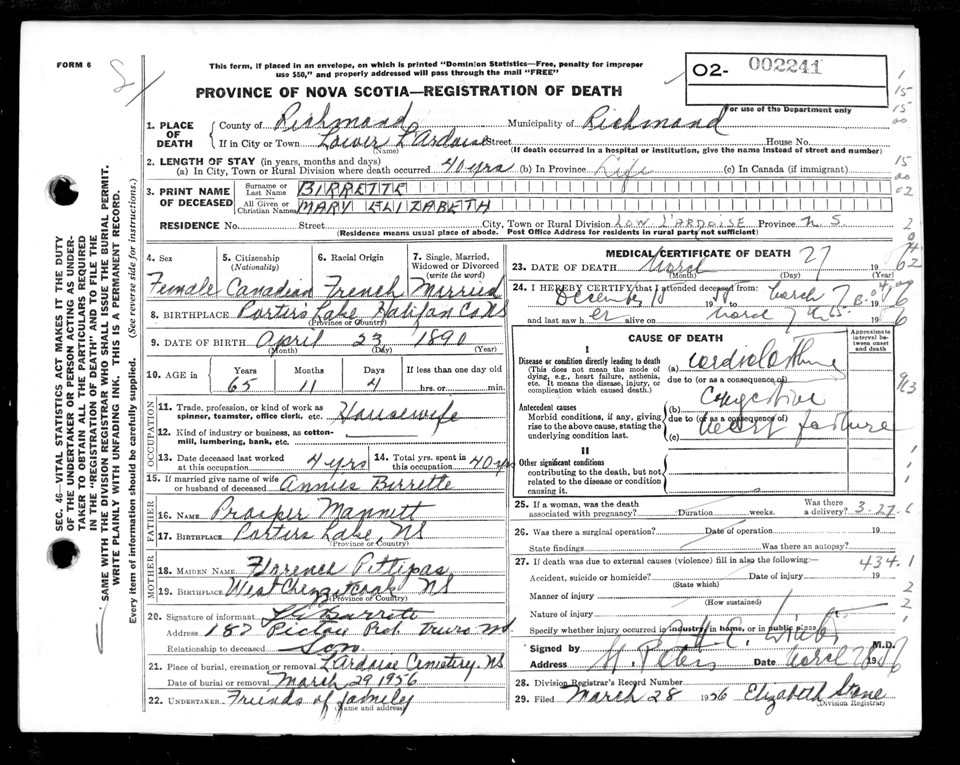 FORM 6
This form, if placed in an envelope, on which is printed "Dominion Statistics—Free, penalty for improper
use $50," and properly addressed will pass through the mail "FREE"
02- 002241
For use of the Department only
PROVINCE OF NOVA SCOTIA—REGISTRATION OF DEATH
1. PLACE OF DEATH County of Richmond Municipality of Richmond
If in City or Town Lower L'Ardoise Street House No.
(Name) (If death occurred in a hospital or institution, give the name instead of street and number)
2. LENGTH OF STAY (in years, months and days)
(a) In City, Town or Rural Division where death occurred 40 yrs (b) In Province Life (c) In Canada (if immigrant)
3. PRINT NAME OF DECEASED Surname or Last Name BIRRETTE
All Given or Christian Names MARY ELIZABETH
RESIDENCE No. Street City, Town or Rural Division LOW L'ARDOISE Province N S
(Residence means usual place of abode. Post Office Address for residents in rural parts not sufficient)
4. Sex Female
5. Citizenship (Nationality) Canadian
6. Racial Origin French
7. Single, Married, Widowed or Divorced (write the word) Married
8. BIRTHPLACE Porters Lake Halifax Co NS
(Province or Country)
9. DATE OF BIRTH April 23 1890
(Month) (Day) (Year)
10. AGE in Years Months Days If less than one day old
65 11 4 hrs. or min.
OCCUPATION
11. Trade, profession, or kind of work as spinner, teamster, office clerk, etc. Housewife
12. Kind of industry or business, as cotton-mill, lumbering, bank, etc.
13. Date deceased last worked at this occupation 4 yrs 14. Total yrs. spent in this occupation 40 yrs
15. If married give name of wife or husband of deceased Annies Birrette
FATHER
16. Name Prosper Mannett
17. Birthplace Porters Lake, NS
(Province or Country)
MOTHER
18. MAIDEN NAME Florence Pettipas
19. BIRTHPLACE West Chezzetcook NS
(Province or Country)
20. Signature of informant
Address 187 Pictou Rd. Truro NS
Relationship to deceased Son
21. Place of burial, cremation or removal L'Ardoise Cemetery, NS
Date of burial or removal March 29 1956
22. UNDERTAKER Friends of family
(Name and address)
MEDICAL CERTIFICATE OF DEATH
23. DATE OF DEATH March 27 19
(Month) (Day) (Year)
24. I HEREBY CERTIFY that I attended deceased from:
December 15 19 55 to March 7
and last saw her alive on March 7th 19
CAUSE OF DEATH
Approximate interval between onset and death
I
Disease or condition directly leading to death
(This does not mean the mode of dying, e.g., heart failure, asthenia, etc. It means the disease, injury, or complication which caused death.)
(a)
due to (or as a consequence of)
Antecedent causes
Morbid conditions, if any, giving rise to the above cause, stating the underlying condition last.
(b) Congestive
due to (or as a consequence of)
(c) heart failure
II
Other significant conditions
contributing to the death, but not related to the disease or condition causing it.
25. If a woman, was the death associated with pregnancy? Duration weeks. Was there a delivery? 3-27-
26. Was there a surgical operation? Date of operation 19
State findings Was there an autopsy?
27. If death was due to external causes (violence) fill in also the following: 434.1
Accident, suicide or homicide? Date of injury 19
(State which)
Manner of injury
(How sustained)
Nature of injury
Specify whether injury occurred in industry, in home, or in public place
Signed by M.D.
Address St. Peters Date March 28 19
28. Division Registrar's Record Number
29. Filed March 28 1956 Elizabeth Stone
(Division Registrar)
SEC. 46—VITAL STATISTICS ACT MAKES IT THE DUTY
OF THE UNDERTAKER OR PERSON ACTING AS UNDER-
TAKER TO OBTAIN ALL THE PARTICULARS REQUIRED
IN THE "REGISTRATION OF DEATH" AND TO FILE THE
SAME WITH THE DIVISION REGISTRAR WHO SHALL ISSUE THE BURIAL PERMIT.
WRITE PLAINLY WITH UNFADING INK. THIS IS A PERMANENT RECORD.
Every item of information should be carefully supplied. (See reverse side for instructions.)